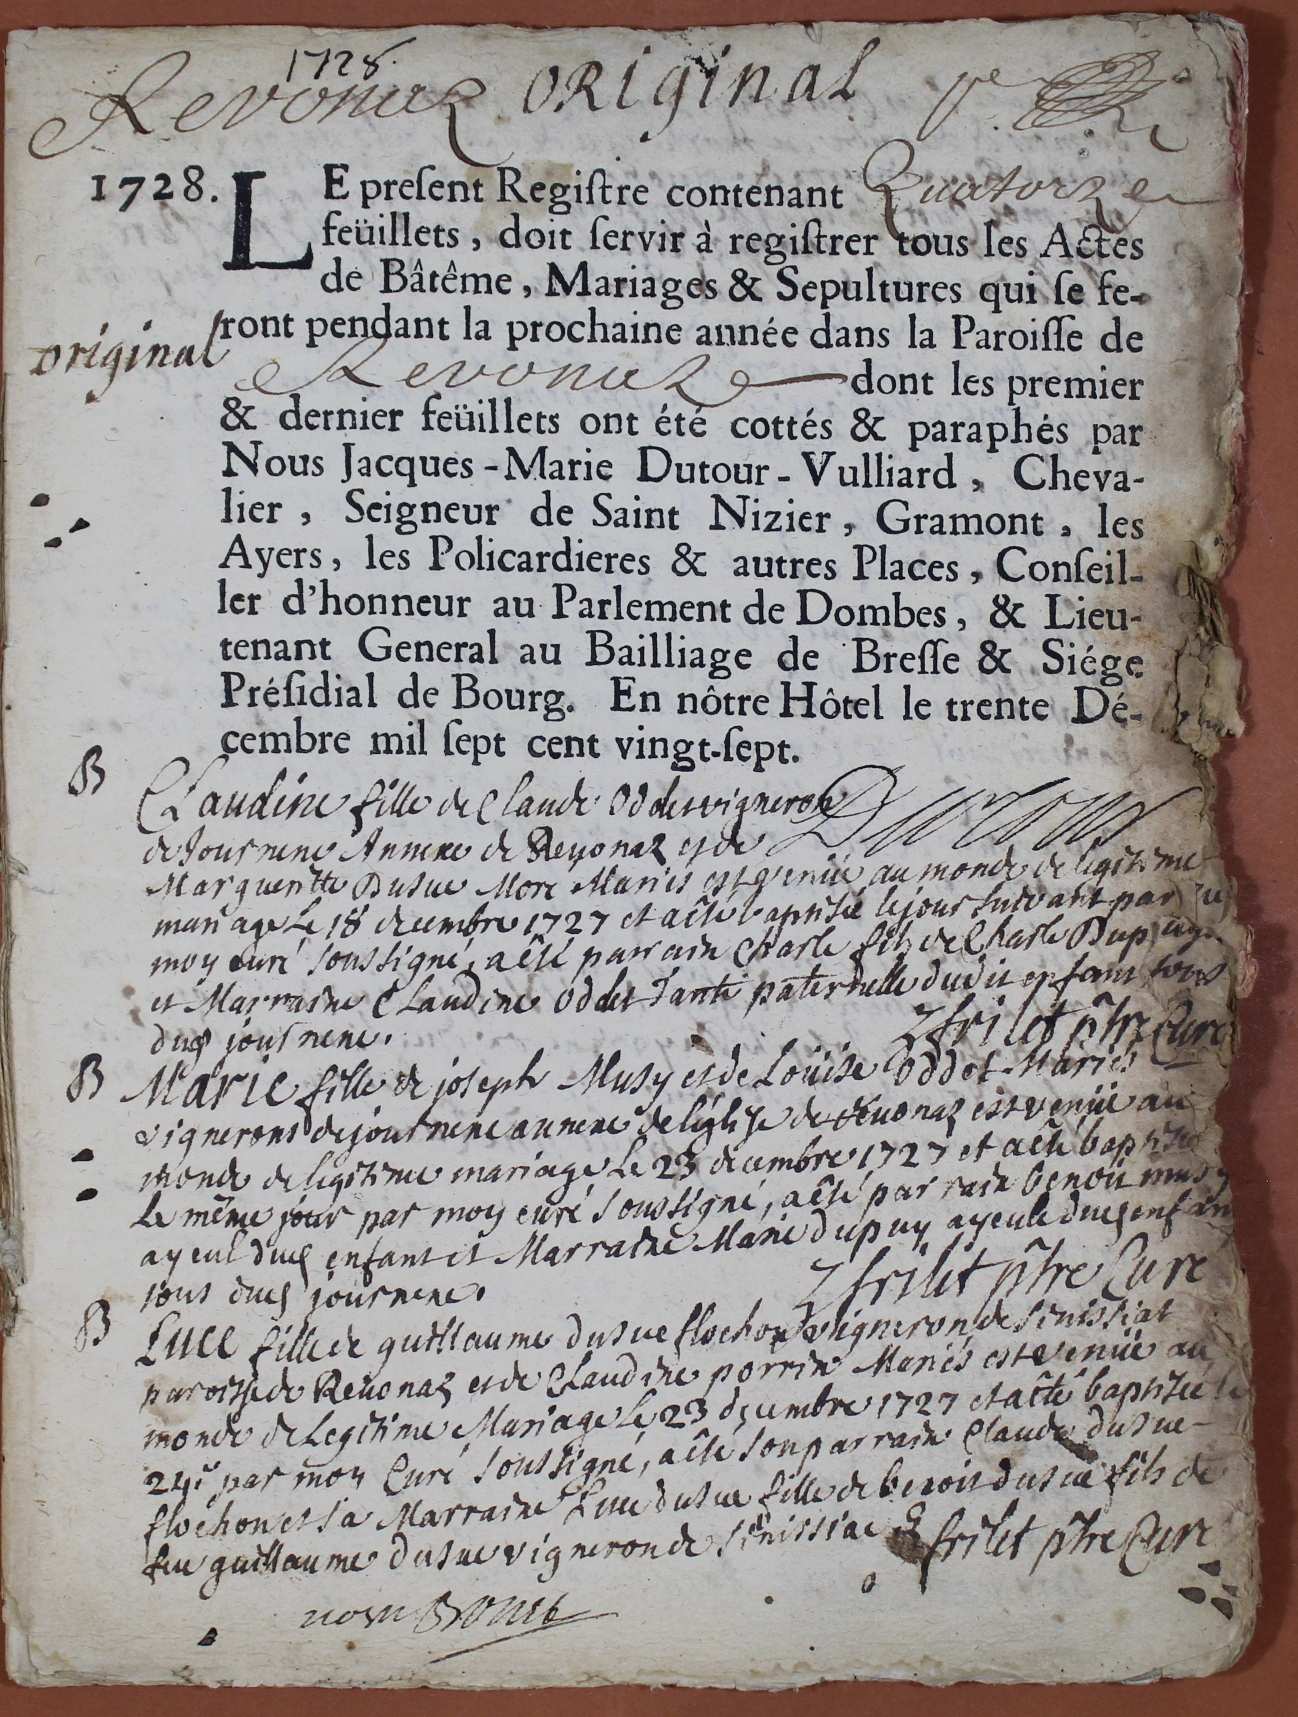 1728.
Revonaz ORiginal pe
1728. LE preſent Regiſtre contenant Quatorze
feüillets, doit ſervir à regiſtrer tous les Actes
de Bâtême, Mariages & Sepultures qui ſe fe-
ront pendant la prochaine année dans la Paroiſſe de
original
Revonaz dont les premier
& dernier feüillets ont été cottés & paraphés par
Nous Jacques-Marie Dutour-Vulliard, Cheva-
lier, Seigneur de Saint Nizier, Gramont, les
Ayers, les Policardieres & autres Places, Conſeil-
ler d'honneur au Parlement de Dombes, & Lieu-
tenant General au Bailliage de Breſſe & Siége
Préſidial de Bourg. En nôtre Hôtel le trente Dé-
cembre mil ſept cent vingt-ſept.
Dutour
B Claudine fille de Claude Oddet vigneron
de Journene Annexe de Revonaz et de
Margueritte Dusue More Mariés est venüe au monde de legitime
mariage Le 18 decembre 1727 et a êté baptisée le jour suivant par
moy curé soussigné, a êté parrain Charle fils de Charle
et Marraine Claudine oddet Tante paternelle dudit enfant tous
dud journene.
frilet ptre Curé
B Marie fille de joseph Musy et de Loüise oddet Mariés
vignerons de journene annexe de l'église de Revonaz est venüe au
monde de legitime mariage Le 23 decembre 1727 et a êté baptisée
le même jour par moy curé soussigné, a êté parrain benoit musy
ayeul dud enfant et Marraine Marie dupuy ayeule dud enfant
tous dud journene.
frilet ptre Curé
B Luce fille de guillaume dusue flochon vigneron de Sénissiat
paroisse de Revonaz et de Claudine perrin Mariés est venüe au
monde de Legitime Mariage Le 23 decembre 1727 et a êté baptisée le
24e par moy Curé soussigné, a êté son parrain Claude dusue
flochon et sa Marraine Luce dusue fille de benoit dusue fils de
feu guillaume dusue vigneron de Sénissiat
frilet ptre Curé